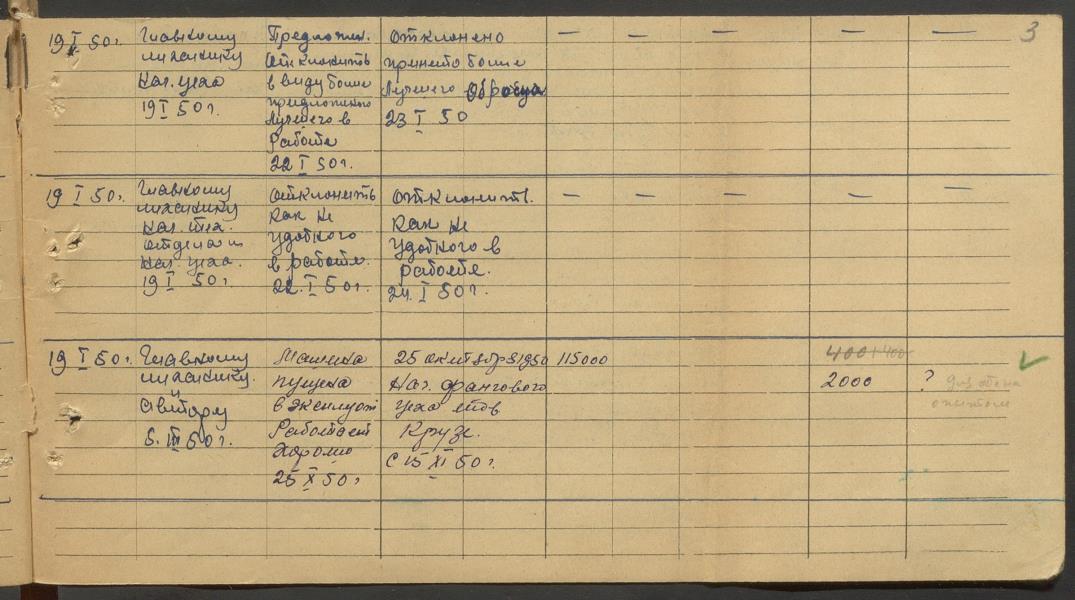 3
19 I 50г.
Главному
механику
Нач. цеха
19 I 50г.
Предлож.
отклонить
в виду более
предложенного
лучшего в
работе
22 I 50г.
отклонено
принято более
лучшего образца
23 I 50
— — — — —
19 I 50г.
Главному
механику
Нач. тех.
отдела и
Нач. цеха.
19 I 50г.
отклонить
как не
удобного
в работе.
22. I 50г.
отклонить.
Как не
удобного в
работе.
24. I 50г.
— — — — —
19 I 50г.
Главному
механику.
и
автору
5. III 50г.
Машина
пущена
в эксплуат
Работает
хорошо
25 X 50г.
25 октября 1950
Нач. фангового
цеха
Крузе.
с 15 XI 50г.
115000
400+400
2000
?